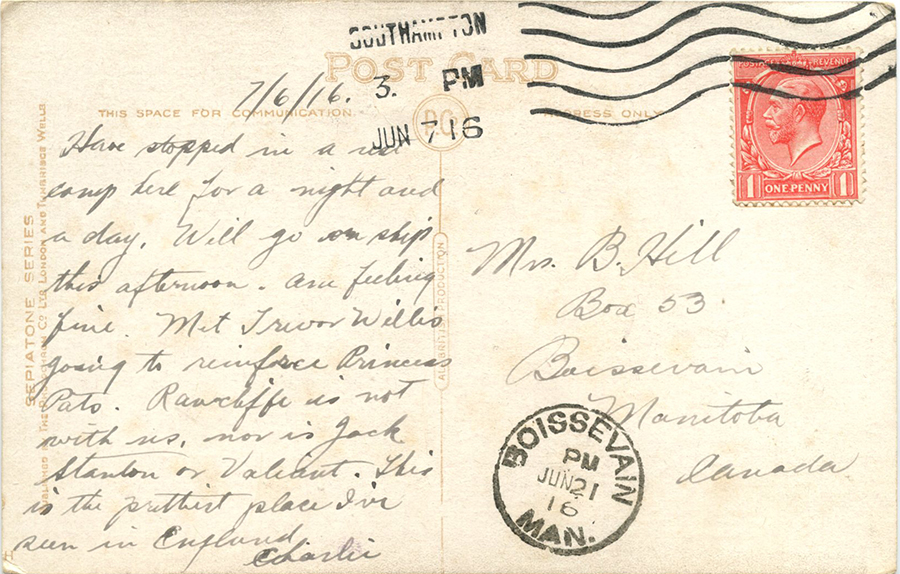 SOUTHAMPTON
3. PM
JUN 7 16
POST CARD
THIS SPACE FOR COMMUNICATION.
ADDRESS ONLY
SEPIATONE SERIES
LTD LONDON AND TUNBRIDGE WELLS
POSTAGE REVENUE
1 ONE PENNY 1
7/6/16.
Have stopped in a rest
camp here for a night and
a day. Will go on ship
this afternoon. Am feeling
fine. Met Trevor Willis
going to reinforce Princess
Pats. Rawcliffe is not
with us, nor is Jack
Stanton or Valeant. This
is the prettiest place I've
seen in England
Charlie
Mrs. B. Hill
Box 53.
Boissevain
Manitoba
Canada
BOISSEVAIN
PM
JUN 21
16
MAN.